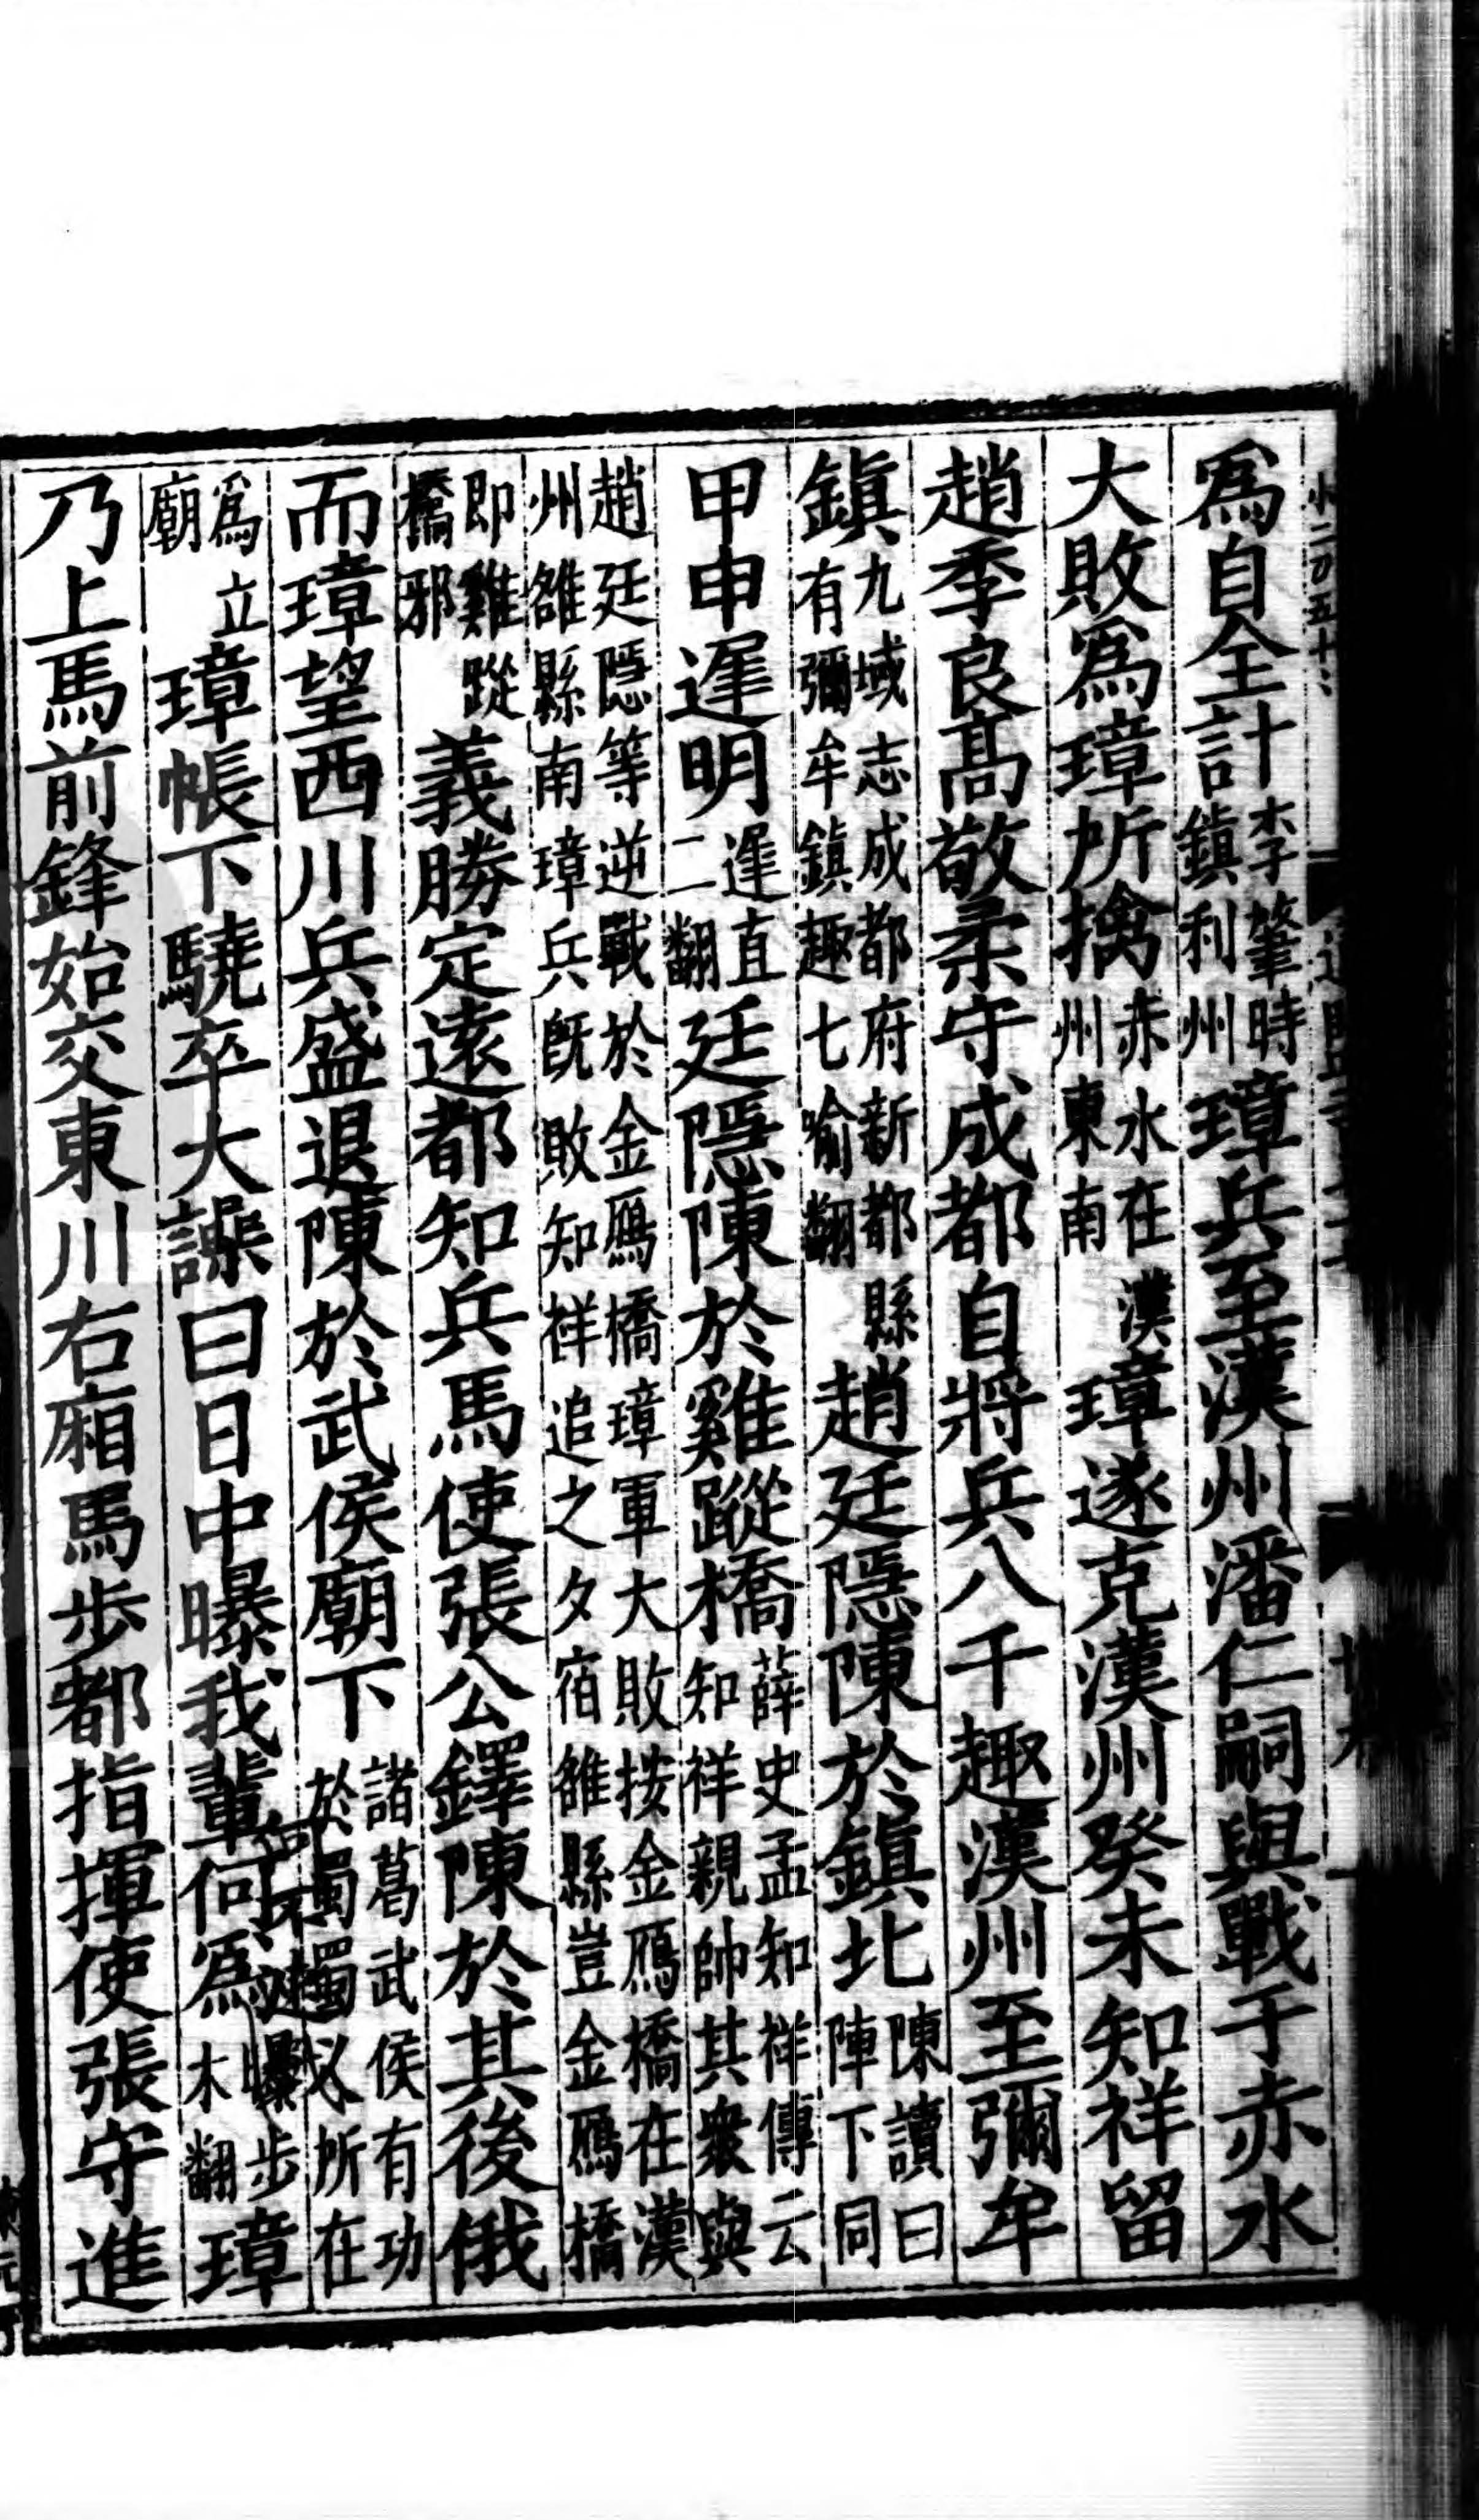 爲自全計李肇時鎮利州璋兵至漢州潘仁嗣與戰于赤水
大敗爲璋所擒赤水在漢州東南璋遂克漢州癸未知祥留
趙季良高敬柔守成都自將兵八千趣漢州至彌牟
鎮九域志成都府新都縣有彌牟鎮趣七喻翻趙廷隱陳於鎮北陳讀曰陣下同
甲申遲明遲直二翻廷隱陳於雞蹤橋薛史孟知祥傳云知祥親帥其衆與
趙廷隱等逆戰於金鴈橋璋軍大敗按金鴈橋在漢州雒縣南璋兵旣敗知祥追之夕宿雒縣豈金鴈橋
即雞蹤橋邪義勝定遠都知兵馬使張公鐸陳於其後俄
而璋望西川兵盛退陳於武侯廟下諸葛武侯有功於蜀蜀人所在
爲立廟璋帳下驍卒大譟曰日中曝我輩何爲曝步木翻璋
乃上馬前鋒始交東川右廂馬步都指揮使張守進